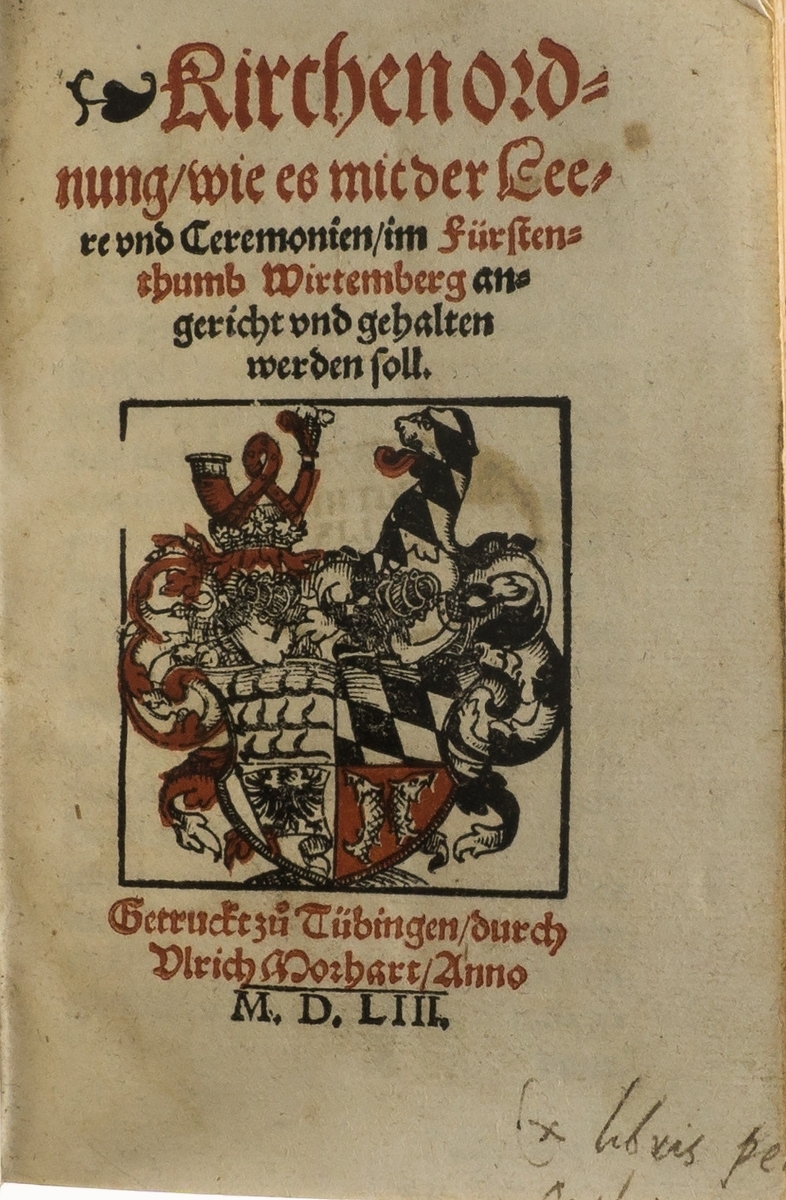 Kirchen ord-
nung/ wie es mit der Lee-
re vnd Ceremonien/ im Fürsten-
thumb Wirtemberg an-
gericht vnd gehalten
werden soll.
Getruckt zů Tübingen/ durch
Vlrich Morhart/ Anno
M. D. LIII.
Ex libris